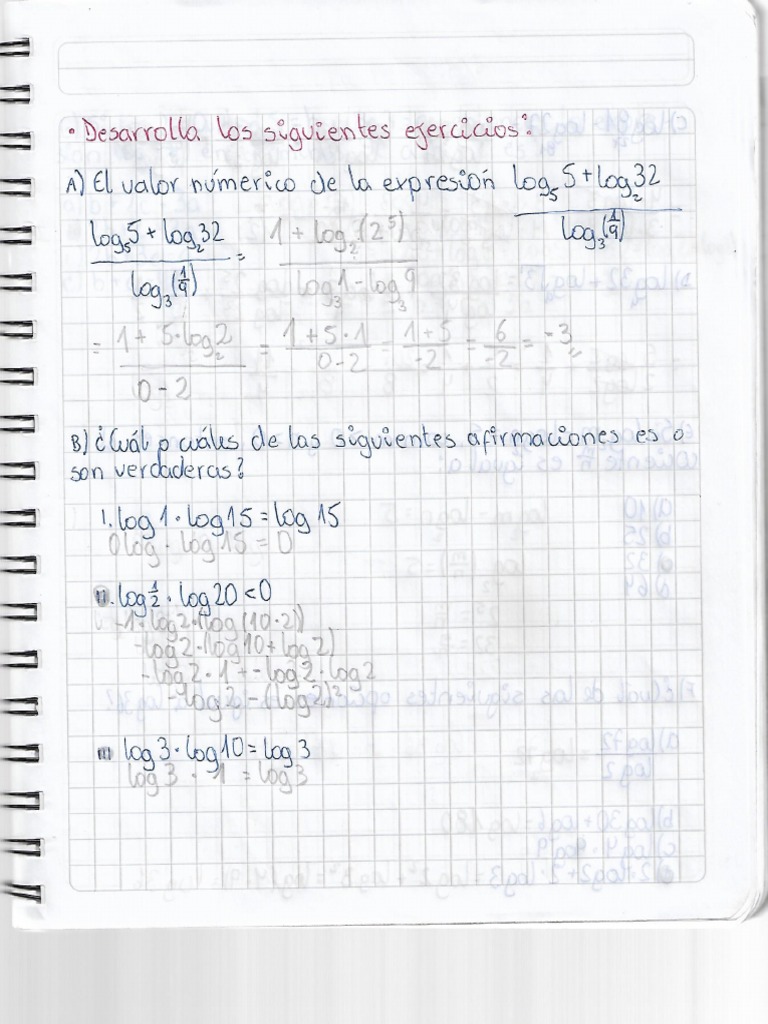 • Desarrolla los siguientes ejercicios:
A) El valor númerico de la expresión (log₅5 + log₂32) / (log₃(1/9))
(log₅5 + log₂32) / (log₃(1/9)) = (1 + log₂(2⁵)) / (log₃1 - log₃9)
= (1 + 5·log₂2) / (0 - 2) = (1 + 5·1) / (0 - 2) = (1 + 5) / (-2) = 6 / (-2) = -3
B) ¿Cuál o cuáles de las siguientes afirmaciones es o
son verdaderas?
I. log1 · log15 = log15
0log · log15 = 0
II. log½ · log20 < 0
-1·log2·(log(10·2))
-log2·(log10 + log2)
-log2·1 + -log2·log2
-log2 - (log2)²
III log3 · log10 = log3
log3 · 1 = log3